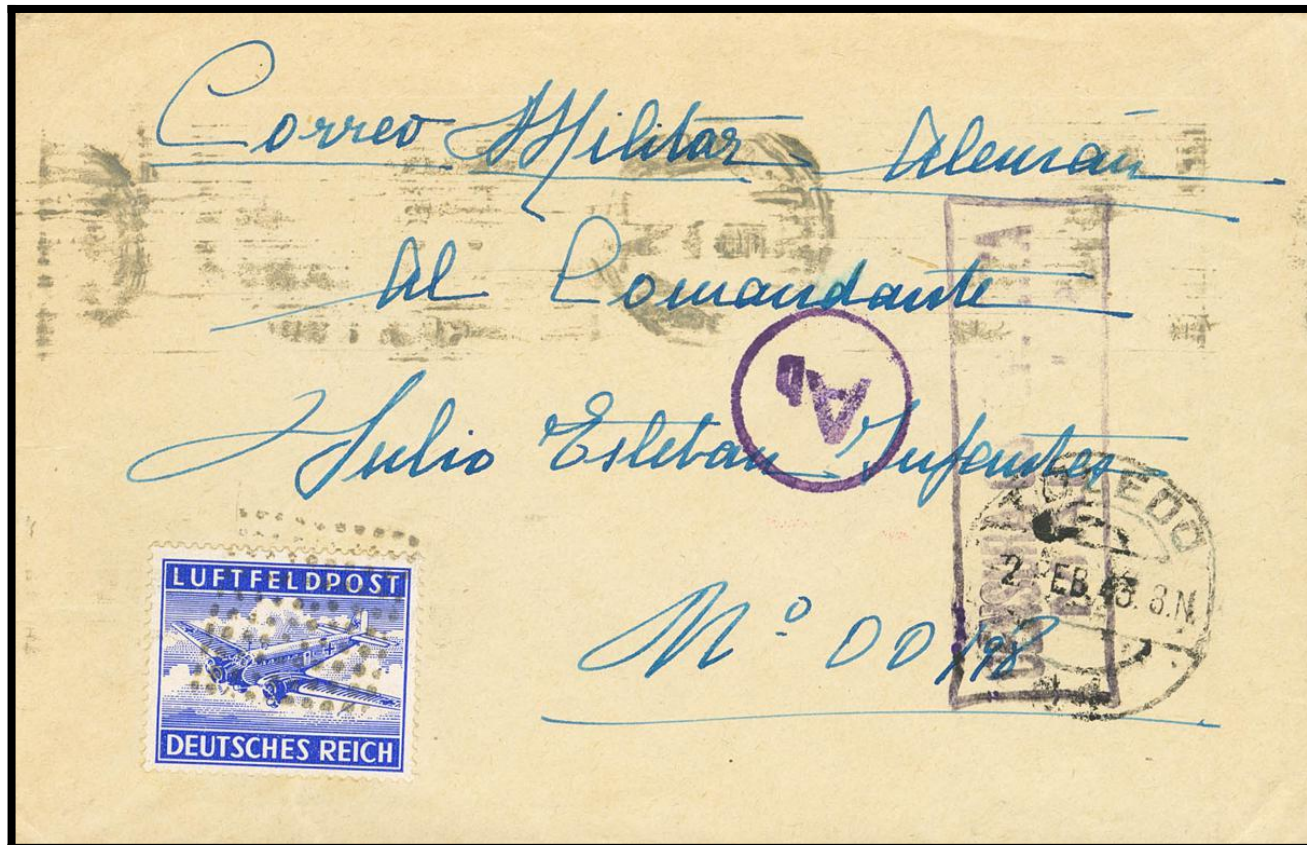 Correo Militar Alemán
Al Comandante
Julio Esteban Infantes
Nº 00198
Ad
TOLEDO
2 FEB.43. 8.N.
LUFTFELDPOST
DEUTSCHES REICH